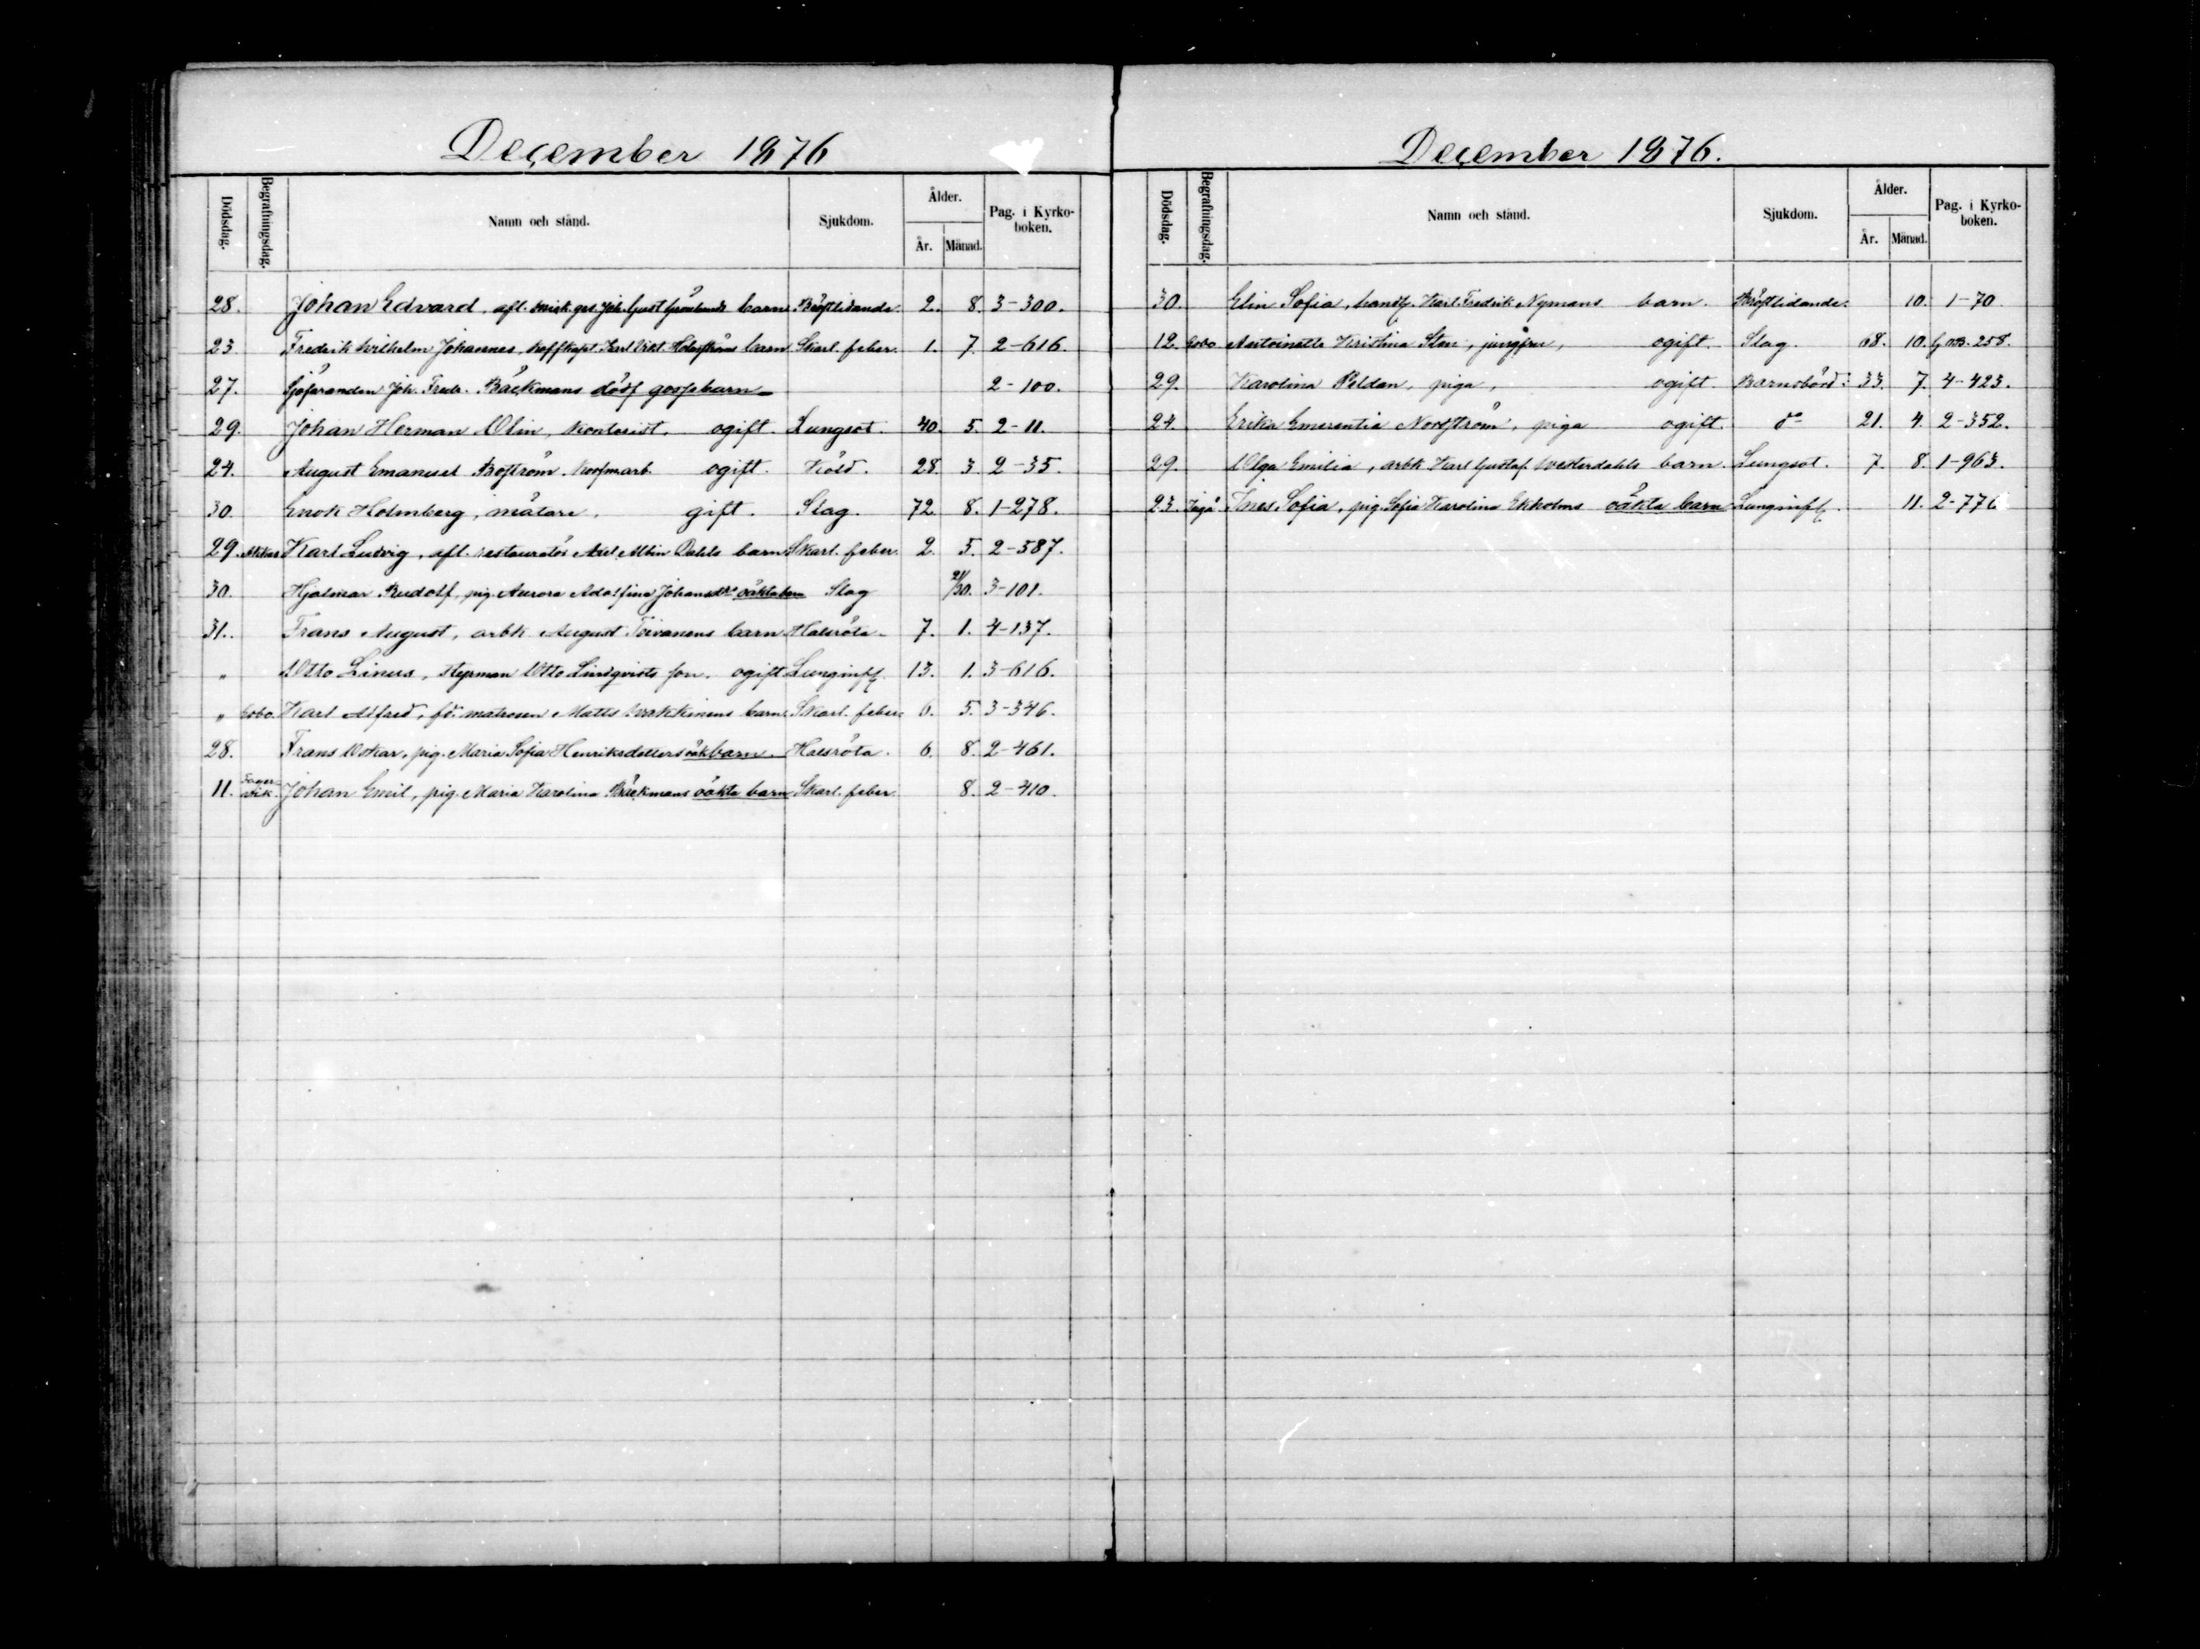 December 1876
Dödsdag. Begrafningsdag. Namn och stånd. Sjukdom. Ålder. År. Månad. Pag. i Kyrkoboken.
28. Johan Edvard, afl. barn Bröstlidande. 2. 8. 3-300.
23 Fredrik Wilhelm Johannes, Karl Vikt. Holmströms barn Skarl. feber. 1. 7. 2-616.
27. Sjöfaranden Joh. Fredr. Bäckmans dödf gossebarn 2-100.
29. Johan Herman Olin, Kontorist, ogift. Lungsot. 40. 5. 2-11.
24. August Emanuel Boström ogift. Kold. 28. 3. 2-35.
30. Enok Holmberg, målare, gift. Slag. 72. 8. 1-278.
29. Karl Ludvig, afl. restauratör Axel Albin Dahls barn Skarl. feber. 2. 5. 2-587.
30. Hjalmar Rudolf, pig. Aurora Adolfina Johansdrs oäkta barn Slag 21/30. 3-101.
31. Frans August, arbk August Toivanens barn Halsröta. 7. 1. 4-137.
" Otto Linus, Styrman Otto Lindqvists son. ogift Lunginfl. 13. 1. 3-616.
" Esbo. Karl Alfred, fd. matrosen Matts barn. Skarl. feber. 6. 5. 3-346.
28. Frans Oskar, pig. Maria Sofia Henriksdotters oäk barn. Halsröta. 6. 8. 2-461.
11. Fagervik. Johan Emil, pig. Maria Karolina Bäckmans oäkta barn Skarl. feber. 8. 2-410.
December 1876.
Dödsdag. Begrafningsdag. Namn och stånd. Sjukdom. Ålder. År. Månad. Pag. i Kyrkoboken.
30. Elin Sofia, handl. Karl Fredrik Nymans barn. Bröstlidande. 10. 1-70
12. Esbo Antoinette Kristina Sten, jungfru, ogift. Slag. 68. 10. 258.
29. Karolina Peldan, piga, ogift. Barnsbörd. 33. 7. 4-423.
24. Erika Emerentia Nordström, piga ogift. do 21. 4. 2-352.
29. Olga Emilia, arbk. Karl Gustaf Westerdahls barn. Lungsot. 7. 8. 1-963.
23. Ingå Ines Sofia, pig. Sofia Karolina Ekholms oäkta barn Lunginfl. 11. 2-776